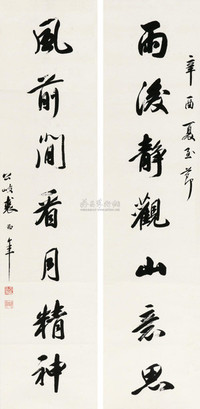 辛酉夏至節
雨後靜觀山意思
風前閒看月精神